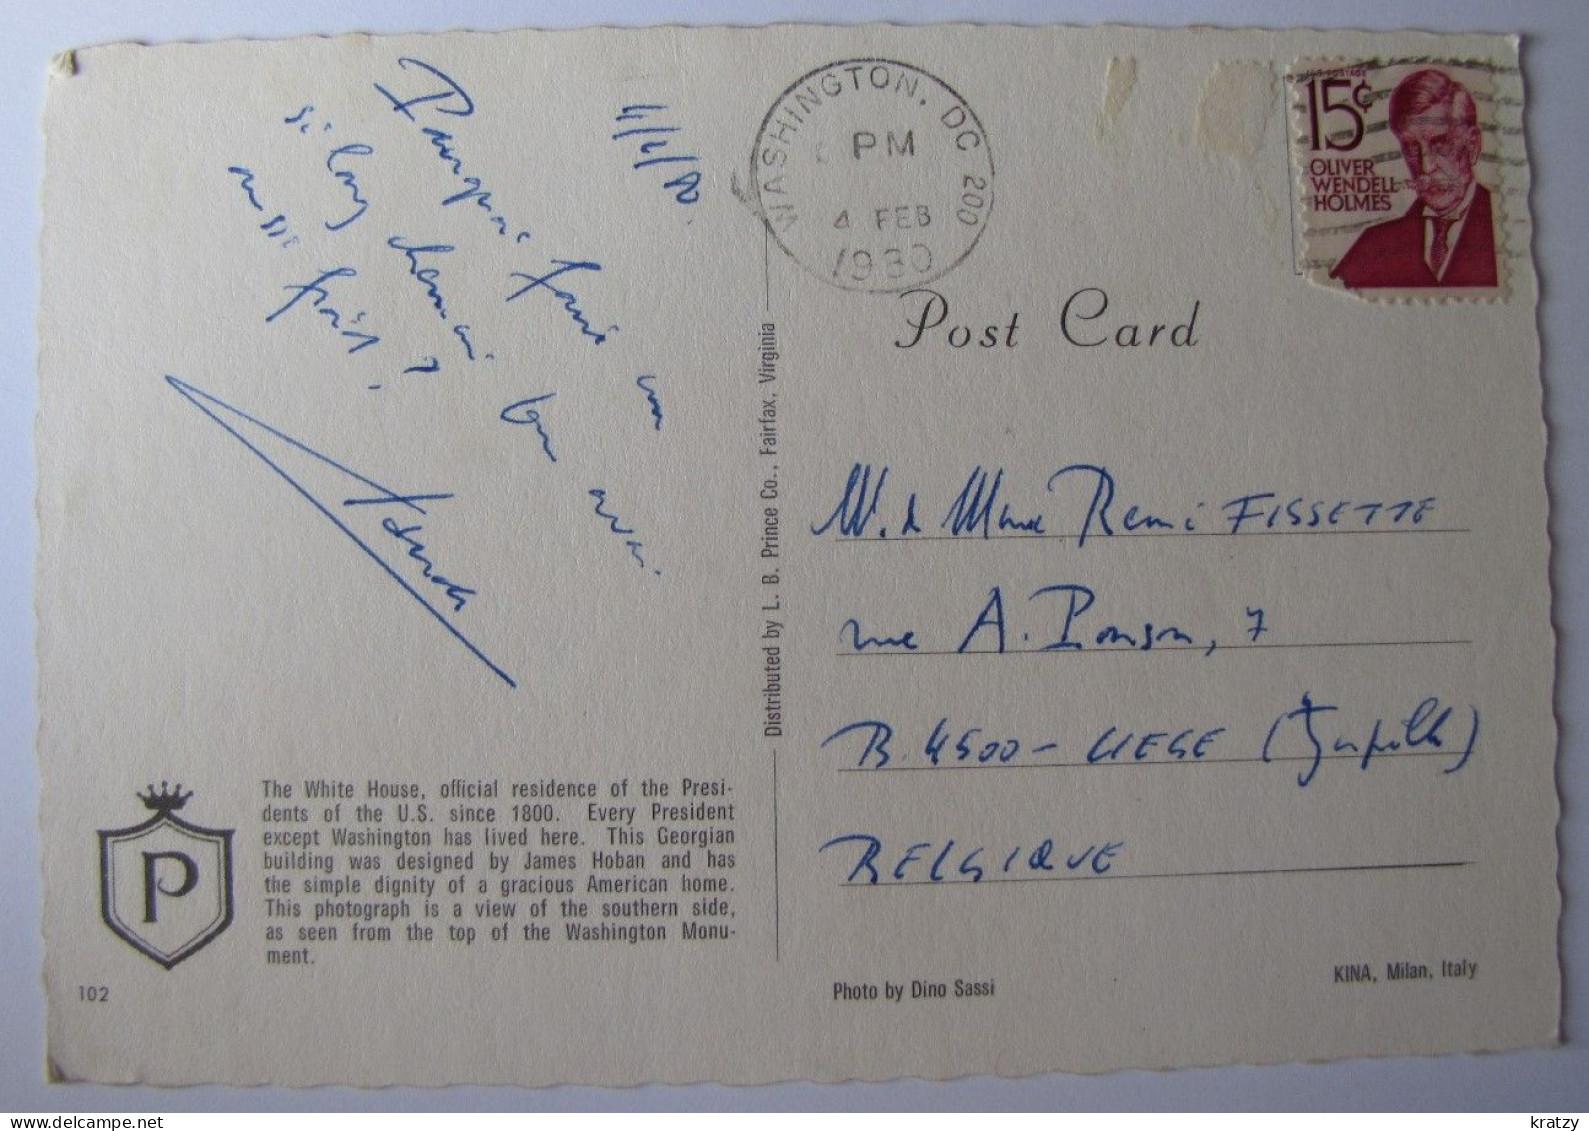 Pourquoi faire un
si long chemin pour avoir
aussi froid ?
WASHINGTON, DC 200
PM
4 FEB
1980
15¢
OLIVER
WENDELL
HOLMES
Post Card
Distributed by L. B. Prince Co., Fairfax, Virginia
M. & Mme Remi FISSETTE
rue A. Ponson, 7
B. 4500 - LIEGE (Jupille)
BELGIQUE
P
The White House, official residence of the Presi-
dents of the U.S. since 1800. Every President
except Washington has lived here. This Georgian
building was designed by James Hoban and has
the simple dignity of a gracious American home.
This photograph is a view of the southern side,
as seen from the top of the Washington Monu-
ment.
102
Photo by Dino Sassi
KINA, Milan, Italy
www.delcampe.net
kratzy